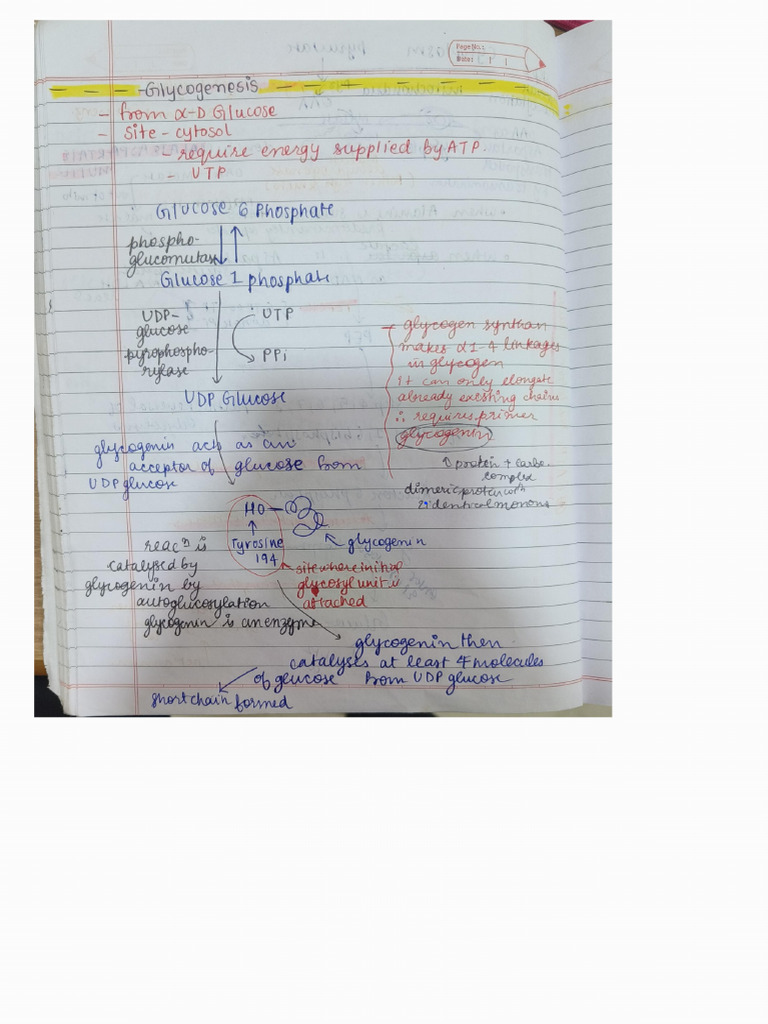 Page No.:
Date:
Glycogenesis
- from α-D Glucose
- Site - cytosol
- require energy supplied by ATP.
- UTP
Glucose 6 Phosphate
phospho-
glucomutase
Glucose 1 phosphate
UDP-
glucose
pyrophospho-
rylase
UTP
PPi
UDP Glucose
→ glycogen synthase
makes α1-4 linkages
in glycogen
It can only elongate
already existing chains
∴ requires primer
glycogenin
↑ protein + carbo.
complex
dimeric protein with
2 identical monomers
glycogenin acts as an
acceptor of glucose from
UDP glucose
HO
Tyrosine
194
glycogenin
site where initial
glycosyl unit is
attached
reacⁿ is
catalysed by
glycogenin by
autoglucosylation
glycogenin is an enzyme
glycogenin then
catalyses at least 7 molecules
of glucose from UDP glucose
short chain formed